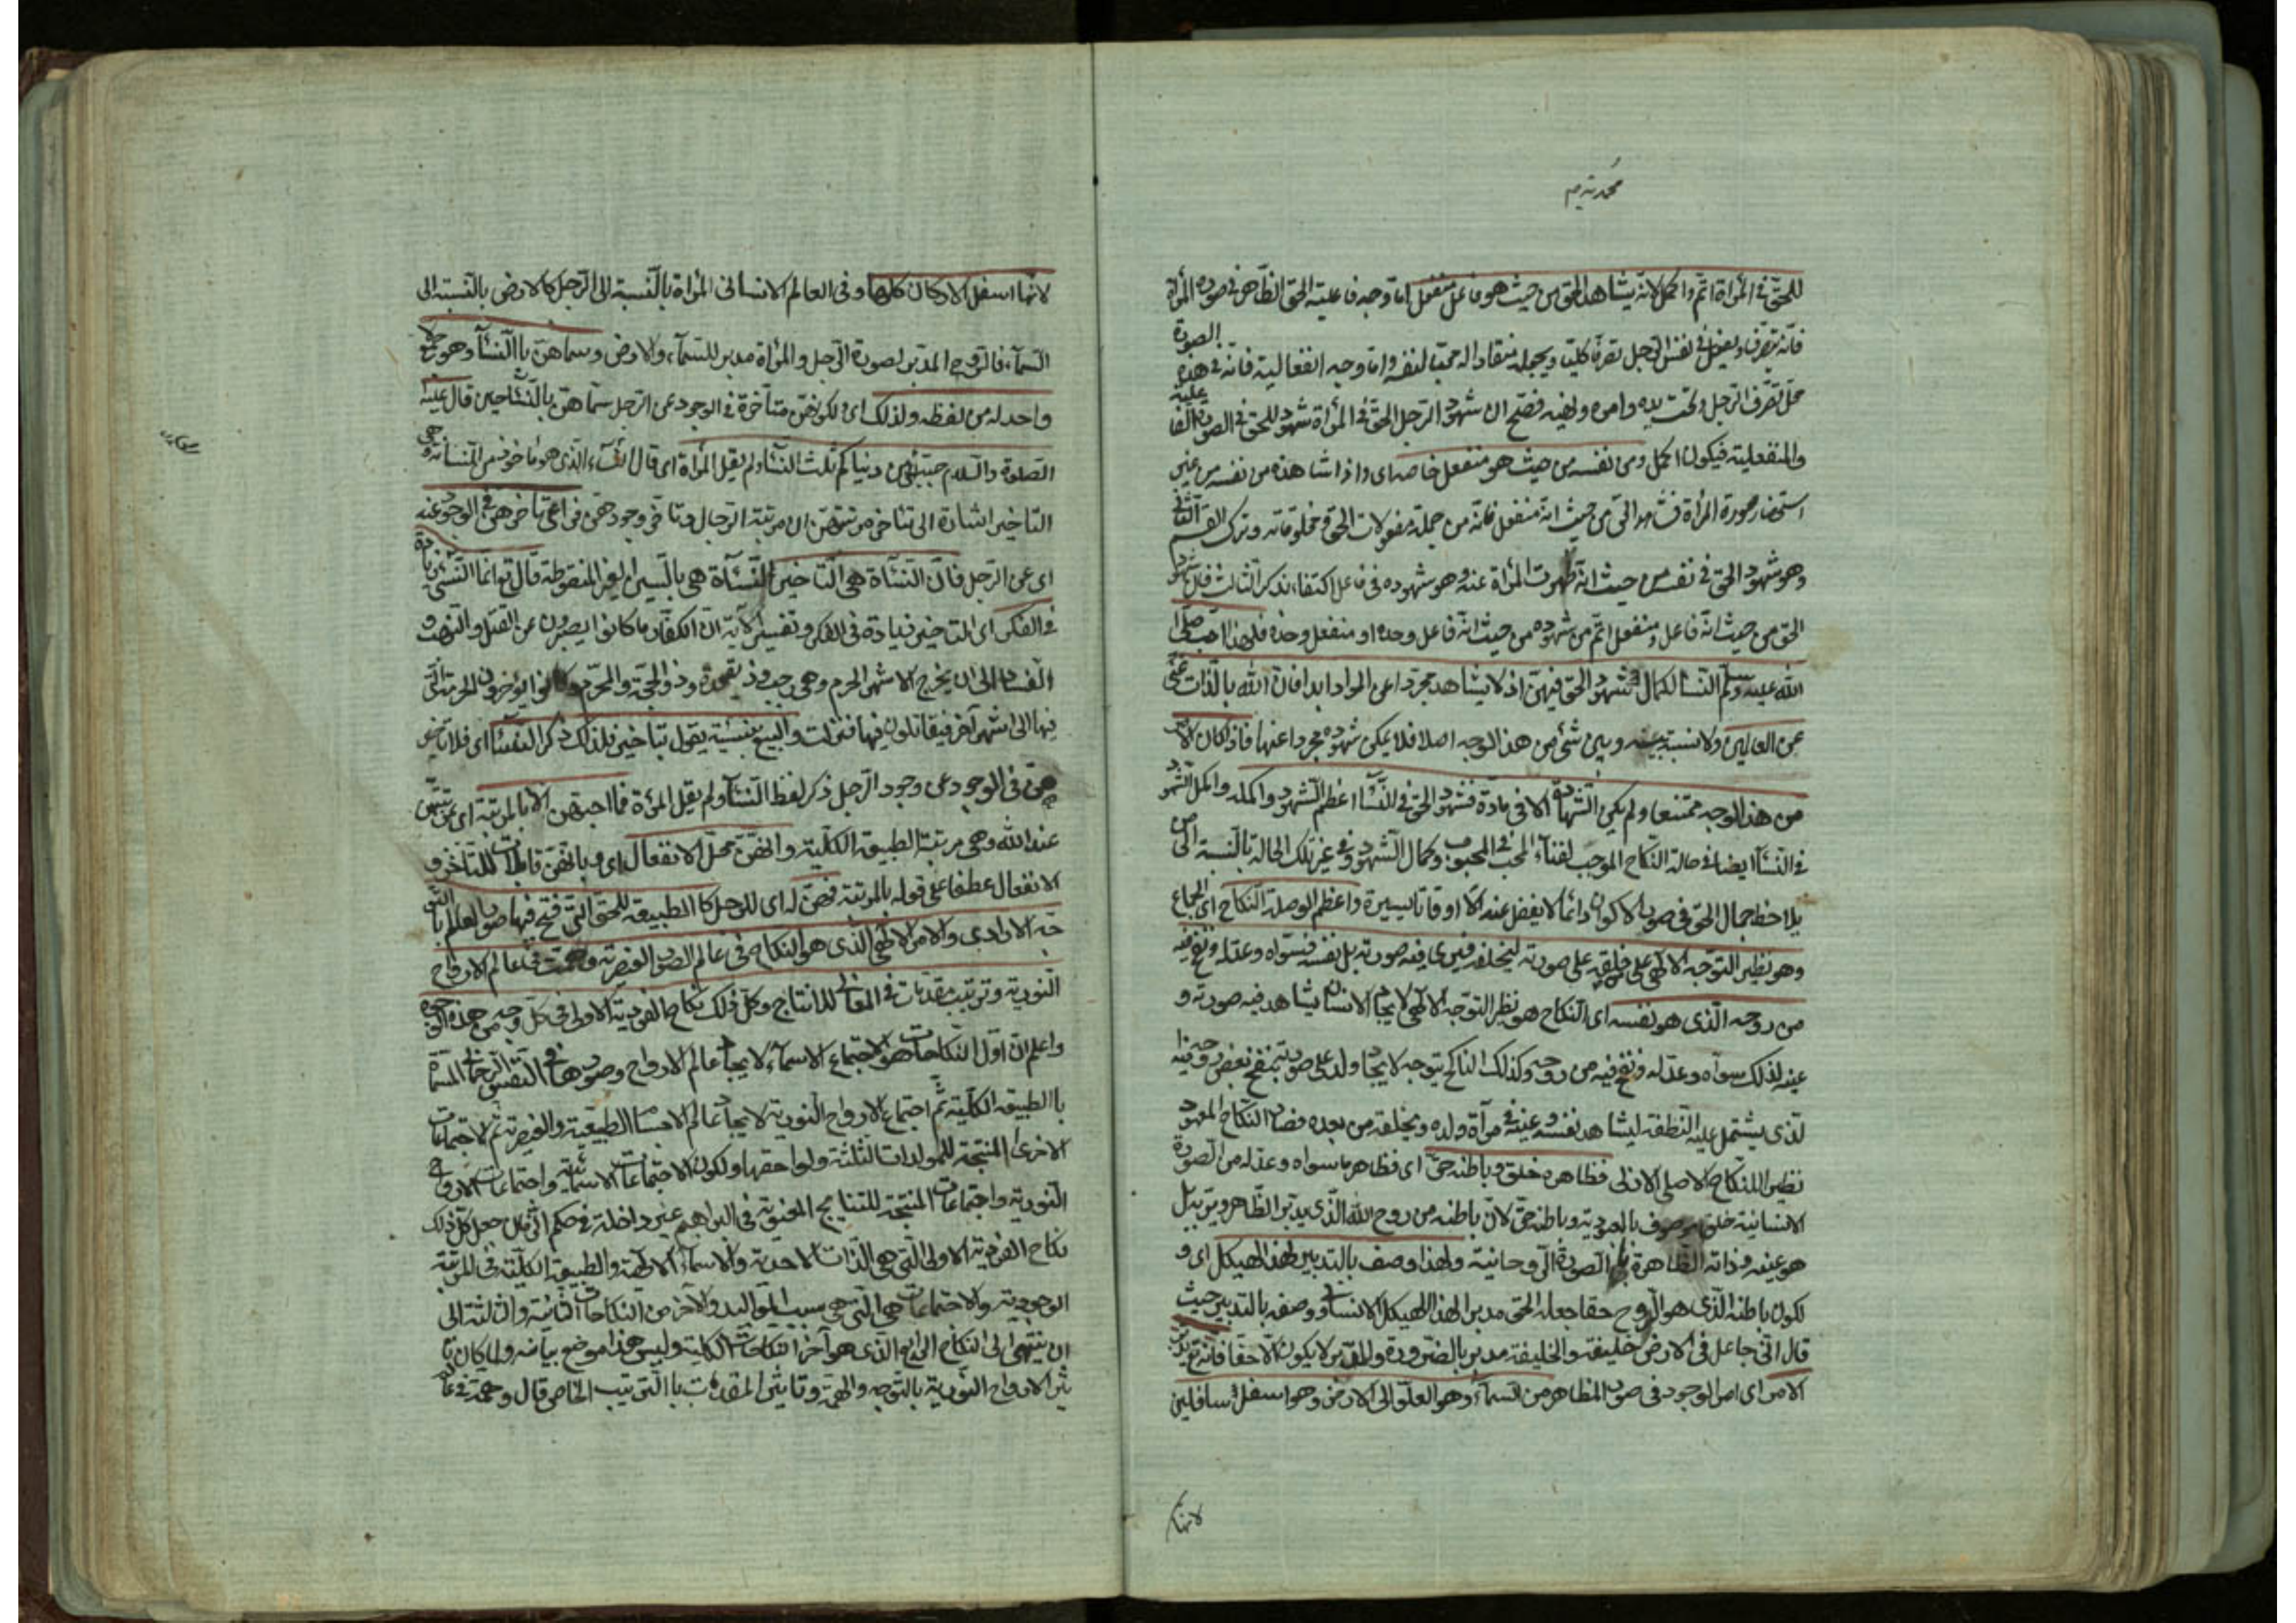 محمدية
للحق في المرأة اتم واكمل لانه يشاهد الحق من حيث هو فاعل منفعل اما وجه فاعلية الحق الظاهر في صورة المرأة
فانه يتصرف ويفعل في نفس الرجل تصرفا كليا ويجعله منقادا له محبا لنفسه واما وجه انفعاليته فانه في هذه الصورة
محل تصرف الرجل وتحت يده وامره ونهيه فصح ان شهود الرجل الحق في المرأة شهود للحق في الصورة الفاعلية
والمنفعلية فيكون اكمل ومن نفسه من حيث هو منفعل خاصه اى واذا شاهده من نفسه من غير
استحضار صورة المرأة من حيث انه منفعل فانه من جملة مفعولات الحق ومخلوقاته وترك القسم الثاني
وهو شهود الحق في نفسه من حيث انه ظهرت المرأة عنه وهو شهوده في فاعل اكتفاء بذكر الثالث فلان شهود
الحق من حيث انه فاعل ومنفعل اتم من شهوده من حيث انه فاعل وحده او منفعل وحده فلهذا احب صلى
الله عليه وسلم النسا لكمال شهود الحق فيهن اذ لا يشاهد مجردا عن المواد ابدا فان الله بالذات غنى
عن العالمين ولا نسبة بينه وبين شئ من هذا الوجه اصلا فلا يمكن شهوده مجردا عنها فاذا كان الامر
من هذا الوجه ممتنعا ولم يكن الشهادة الا في مادة فشهود الحق في النسا اعظم الشهود واكمله واكمل الشهود
في النسا ايضا في حالة النكاح الموجب لفناء المحب في المحبوب وكمال الشهود وفي غير تلك الحالة بالنسبة الى من
يلاحظ جمال الحق في صور الاكوان دائما لا يغفل عنه الا اوقاتا يسيرة واعظم الوصلة النكاح اى الجماع
وهو نظير التوجه الالهى على من خلقه على صورته ليخلفه فيرى فيه صورته بل نفسه فسواه وعدله ونفخ فيه
من روحه الذى هو نفسه اى النكاح هو نظير التوجه الالهى لايجاد الانسان يشاهد فيه صورته و
عينه لذلك سواه وعدله ونفخ فيه من روحه وكذلك الناكح يتوجه لايجاد ولد على صورته بنفخ بعض روحه فيه
لذى يشتمل عليه النطفة ليشاهد نفسه وعينه في مرآة ولده ويخلفه من بعده فصار النكاح المعهود
نظيرا للنكاح الاصلى الازلى فظاهره خلق وباطنه حق اى فظاهر ما سواه وعدله من الصورة
الانسانية خلق موصوف بالعبودية وباطنه حق لان باطنه من روح الله الذى يدبر الظاهر ويربه بل
هو عينه وذاته الظاهرة الصورة الروحانية ولهذا وصف بالتدبير لهذا الهيكل اى و
لكون باطنه الذى هو الروح حقا جعله الحق مدبرا لهذا الهيكل الانسانى ووصفه بالتدبير حيث
قال انى جاعل في الارض خليفة والخليفة مدبر بالضرورة والمدبر لا يكون الا حقا فانه تع يدبر
الامر اى امر الوجود في صور المظاهر من السماء وهو العلو الى الارض وهو اسفل سافلين
لانها
لانها اسفل الاركان كلها وفى العالم الانسانى المرأة بالنسبة الى الرجل كالارض بالنسبة الى
السماء فالروح المدبر لصورة الرجل والمرأة مدبر للسماء والارض وسماهن بالنساء وهو جمع لا
واحد له من لفظه ولذلك اى لكونهن متأخرة في الوجود عن الرجل سماهن بالنساء حين قال عليه
الصلوة والسلام حبب الى من دنياكم ثلث النساء ولم يقل المرأة اى قال النساء الذى هو مأخوذ من النسأة وهى
التاخير اشارة الى تاخر مرتبتهن من مرتبة الرجال وتاخر وجودهن فراعى تأخرهن في الوجود عنه
اى عن الرجل فان النسأة هى التاخير النسأة هى بالسين الغير المنقوطة قال تع انما النسئ زيادة
في الكفر اى التاخير زيادة في الكفر وتفسير الآية ان الكفار ما كانوا يصبرون عن القتل والنهب و
الفساد الى ان يخرج الاشهر الحرم وهى رجب وذو القعدة وذو الحجة والمحرم وكانوا يؤخرون الحرمة التى
فيها الى اشهر آخر فيقاتلون فيها فنزلت والبيع بنسية يقول بتاخير فلذلك ذكر النساء اى فلتأخر
هن في الوجود عن وجود الرجل ذكر لفظ النساء ولم يقل المرأة فما احبهن الا بالمرتبة اى مرتبتهن
عند الله وهى مرتبة الطبيعة الكلية وانهن محل الانفعال اى وبانهن قابلات للتأخر و
الانفعال عطفا على قوله بالمرتبة فهن له اى للرجل كالطبيعة للحق التى فتح فيها صور العالم بالتو
جه الارادى والامر الالهى الذى هو النكاح في عالم الصور العنصرية وهمة في عالم الارواح
النورية وترتيب مقدمات في المعانى للانتاج وكل ذلك نكاح الفردية الاولى في كل وجه من هذه الوجوه
واعلم ان اول النكاحات هو اجتماع الاسماء لايجاد عالم الارواح وصورها في النفس الرحمانى المسماة
بالطبيعة الكلية ثم اجتماع الارواح النورية لايجاد عالم الاجسام الطبيعية والعنصرية ثم الاجتماعات
الاخرى المنتجة للمولدات الثلثة ولواحقها ولكون الاجتماعات الاسمائية واجتماعات الارواح
النورية واجتماعات المنتجة للنتايج المعنوية في البراهين غير داخلة في حكم الزمان جعل كل ذلك
نكاح الفردية الاولى التى هى الذات الاحدية والاسماء الالهية والطبيعة الكلية في المرتبة
الوجودية والاجتماعات هى التى هى سبب من النكاحات الثانية والثالثة الى
ان ينتهى الى النكاح الرابع الذى هو آخر النكاحات الكلية وليس هذا موضع بيانه ولما كان تا
ثير الارواح النورية بالتوجه والهمة وتاثير المقدمات بالترتيب الخاص قال وهمة في عالم